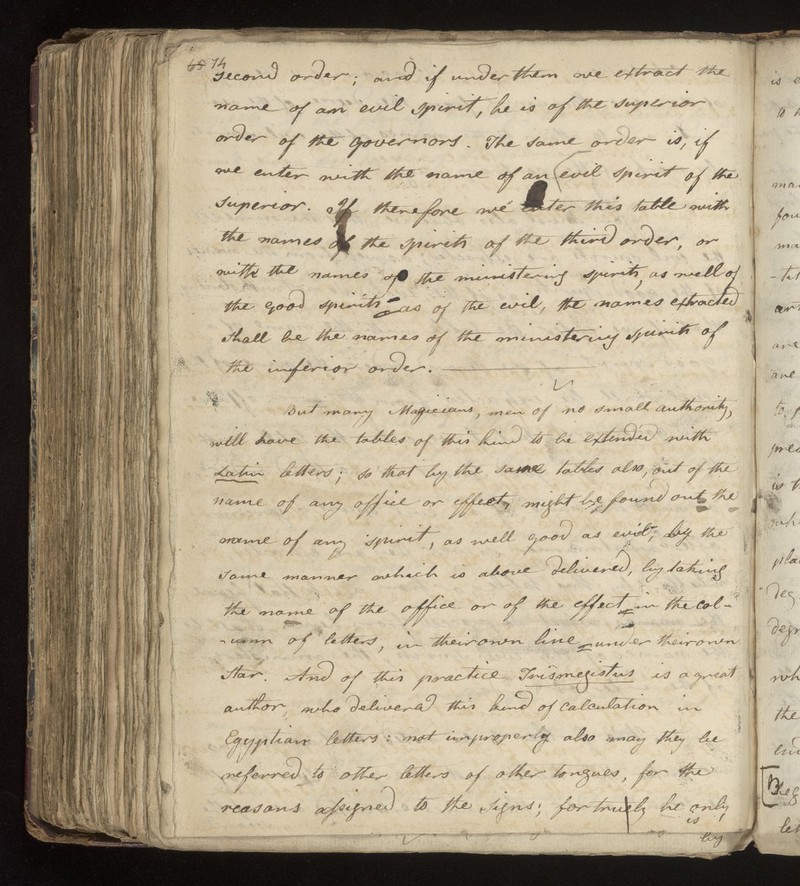 68 74
second order; and if under them we extract the
name of an evil spirit, he is of the superior
order of the governors. The same order is, if
we enter with the name of an evil spirit of the
superior. If therefore we enter this table with
the names of the spirits of the third order, or
with the names of the ministering spirits, as well of
the good spirits as of the evil, the names extracted
shall be the names of the ministering spirits of
the inferior order.
But many Magicians, men of no small authority,
will have the tables of this kind to be extended with
Latin letters; so that by the same tables also, out of the
name of any office or effect, might be found out the
name of any spirit, as well good as evil, by the
same manner which is above delivered, by taking
the name of the office or of the effect in the col-
-umn of letters, in their own line under their own
star. And of this practice Trismegistus is a great
author, who delivered this kind of calculation in
Egyptian letters: not improperly also may they be
referred to other letters of other tongues, for the
reasons assigned to the signs; for truely he only
is
by